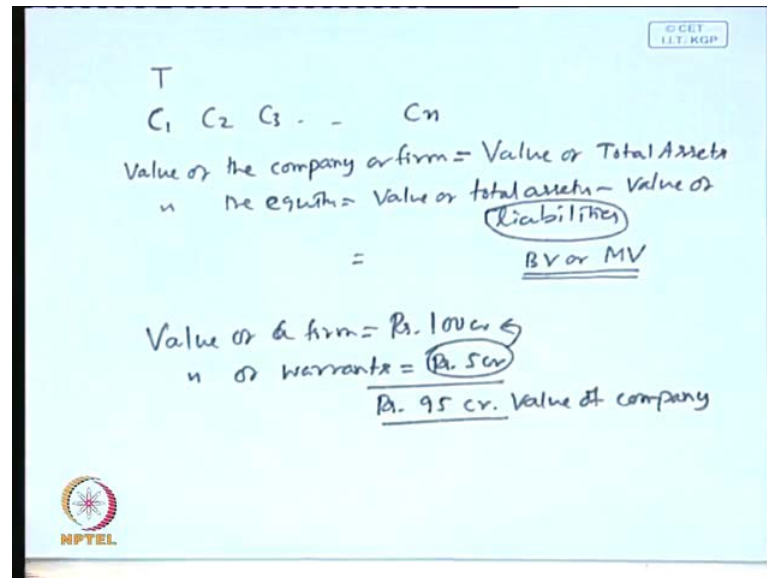 © CET
I.I.T. KGP
T
C1 C2 C3 . - Cn
Value of the company or firm = Value of Total Assets
" the equity = Value of total assets - Value of
liabilities
= BV or MV
Value of a firm = Rs. 100 cr
" of warrants = Rs. 5 cr
Rs. 95 cr. Value of company
NPTEL